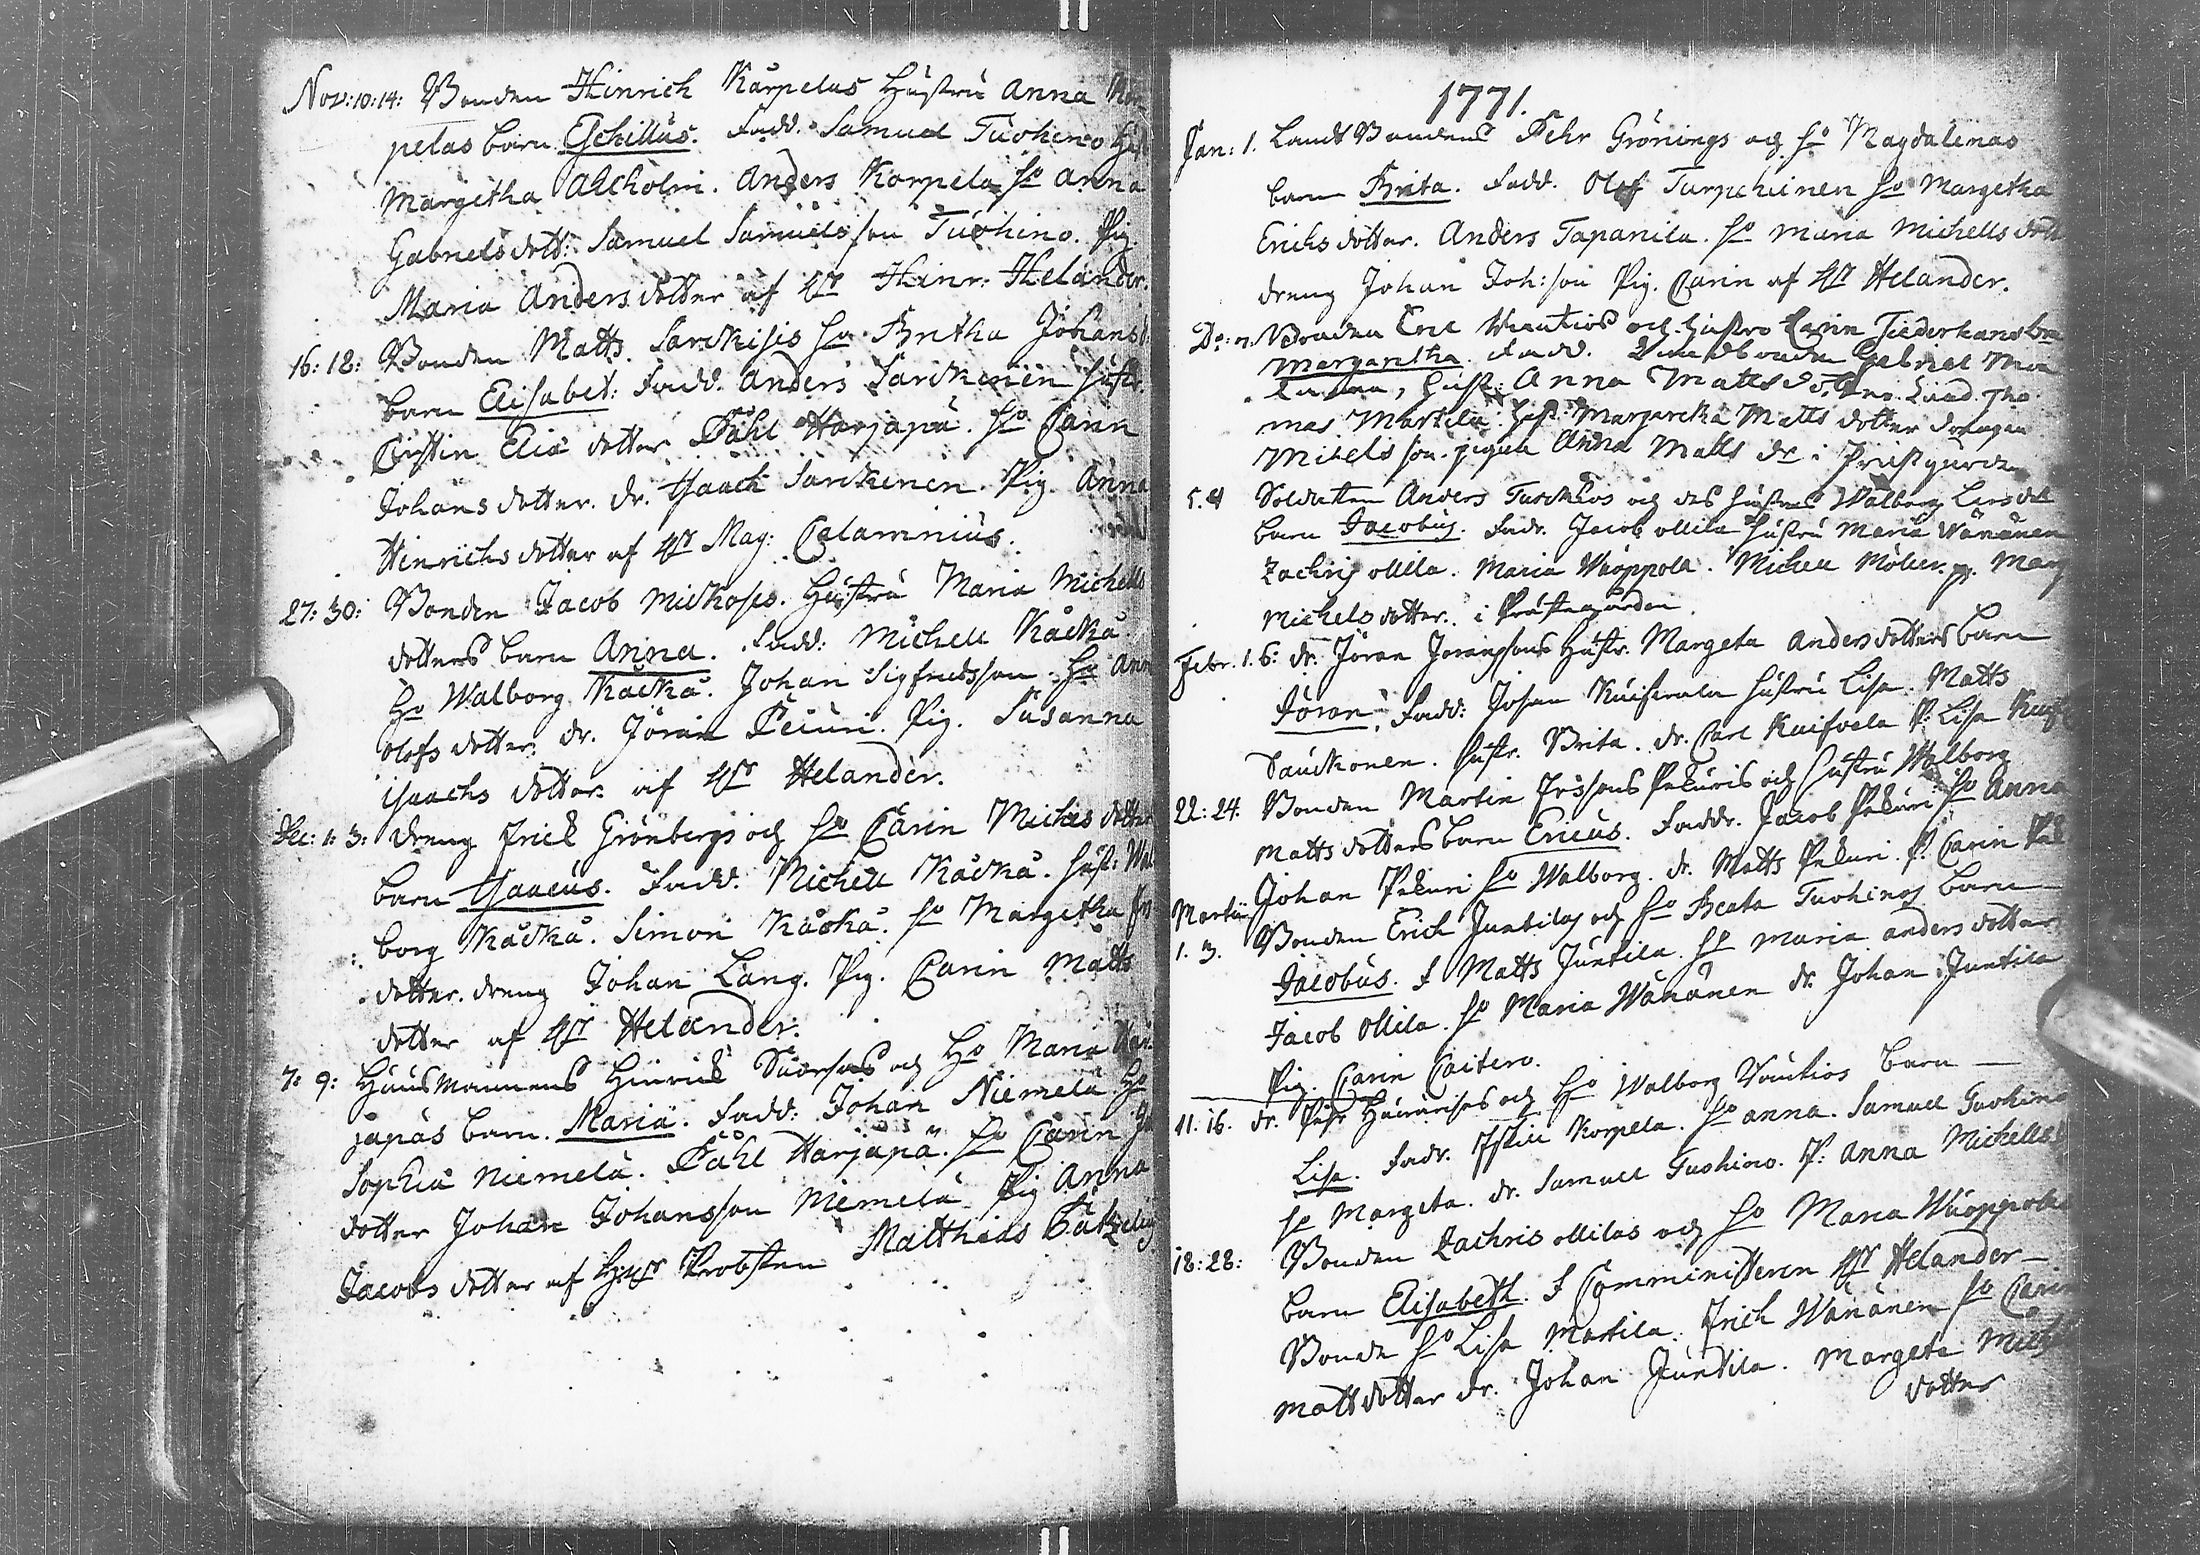 Nov: 10: 14: Bonden Hinrich Karpelas Hustru Anna
pelas barn Eschillus. Fadd. Samuel Tuohino
Margetha Ahlholm. Anders Korpela ho Anna
Gabrielsdott: Samuel Samuelsson Tuohino. Pig.
Maria Andersdotter af Hr Hinr: Helander.
16: 18: Bonden Matts Sarckisis ho Britha Johans
barn Elisabet: Fadd. Anders Sarckinen hustr.
Cirstin Eliæ dotter Påhl Harjapä. ho Carin
Johansdotter. dr. Isaach Sarckinen. Pig. Anna
Hinrichsdotter af Hr Mag: Calamnius.
27: 30: Bonden Jacob Mickoses. Hustru Maria Michells
dotters barn Anna. Fadd: Michell Kåckå.
Ho Walborg Kåckå. Johan Sigfredsson. Ho Ann
Olofsdotter. dr. Jöran Peiuri. Pig. Susanna
Isaachsdotter. af Hr Helander.
Dec: 1: 3: dreng Erick Grönbergs och ho Carin Michels dotter
barn Isaacus. Fadd. Michell Kåckå. hust: Wal
borg Kåckå. Simon Kåckå. ho Margetha
dotter. dreng Johan Lang. Pig. Carin Matts
dotter af Hr Helander.
7: 9: Husmannens Hinrick Suorsas och Ho Maria Har
japäs barn. Maria. Fadd: Johan Niemelä Ho
Sophia Niemelä. Påhl Harjapä. ho Carin
dotter Johan Johansson Niemelä Pig Anna
Jacobsdotter af Hr Probsten Matthias
1771.
Jan: 1. Landtbondens Pehr Grönings och ho Magdalenas
barn Brita. Fadd. Olof Turpeheinen ho Margetha
Erichsdotter. Anders Tapanila. ho Maria Michells dott
dreng Johan Joh:son Pig. Carin af Hr Helander.
Bonden och hustro Carin
Margaretha. Fadd. Gabriel
hust: Anna Mattsdotter. Tho
mas Martila. hust: Margareta Mattsdotter drängen
Mikelsson. pigan Anna Matts dr i Prästgården
5. 9 Soldaten Anders och des hustrus Walborg Larsdott
barn Jacobus. Fadr. Jacob Ollila hustru Maria Wänänen
Zachris Ollila. Maria Wuoppola. Michell p. Marg
Michelsdotter. i Prästegården.
Febr. 1. 6: dr. Jöran Jöranssons hustr. Margeta Andersdotters barn
Jöran. Fadd: Johan Kuifwala hustru Lisa Matts
Lauckonen. hustr. Brita. dr. Carl Kuifvala P. Lisa
22: 24. Bonden Martin Erssons Pekuris och hustru Walborg
Mattsdotters barn Ericus. Faddr. Jacob Pekuri ho Anna
Johan Pekuri ho Walborg. dr. Matts Pekuri. P. Carin
Martii
1. 3. Bonden Erich Juntilas och ho Beata Tuohinos barn
Jacobus. F Matts Juntila. ho Maria Andersdotter
Jacob Ollila. ho Maria Wänänen dr. Johan Juntila
Pig. Carin Caitero.
11. 16. dr. Pehr och Ho Walborg barn —
Lisa. Fadr. Eskill Korpela. ho Anna. Samuel Tuohino
ho Margeta. dr. Samuel Tuohino. P: Anna Michells
18: 28: Bonden Zachris Ollilas och ho Maria Wuoppolas
barn Elisabeth. F Comministeren Hr Helander —
Bonde ho Lisa Martila. Erich Wänänen ho Carin
Mattsdotter dr. Johan Juntila. Margeta Mich
dotter